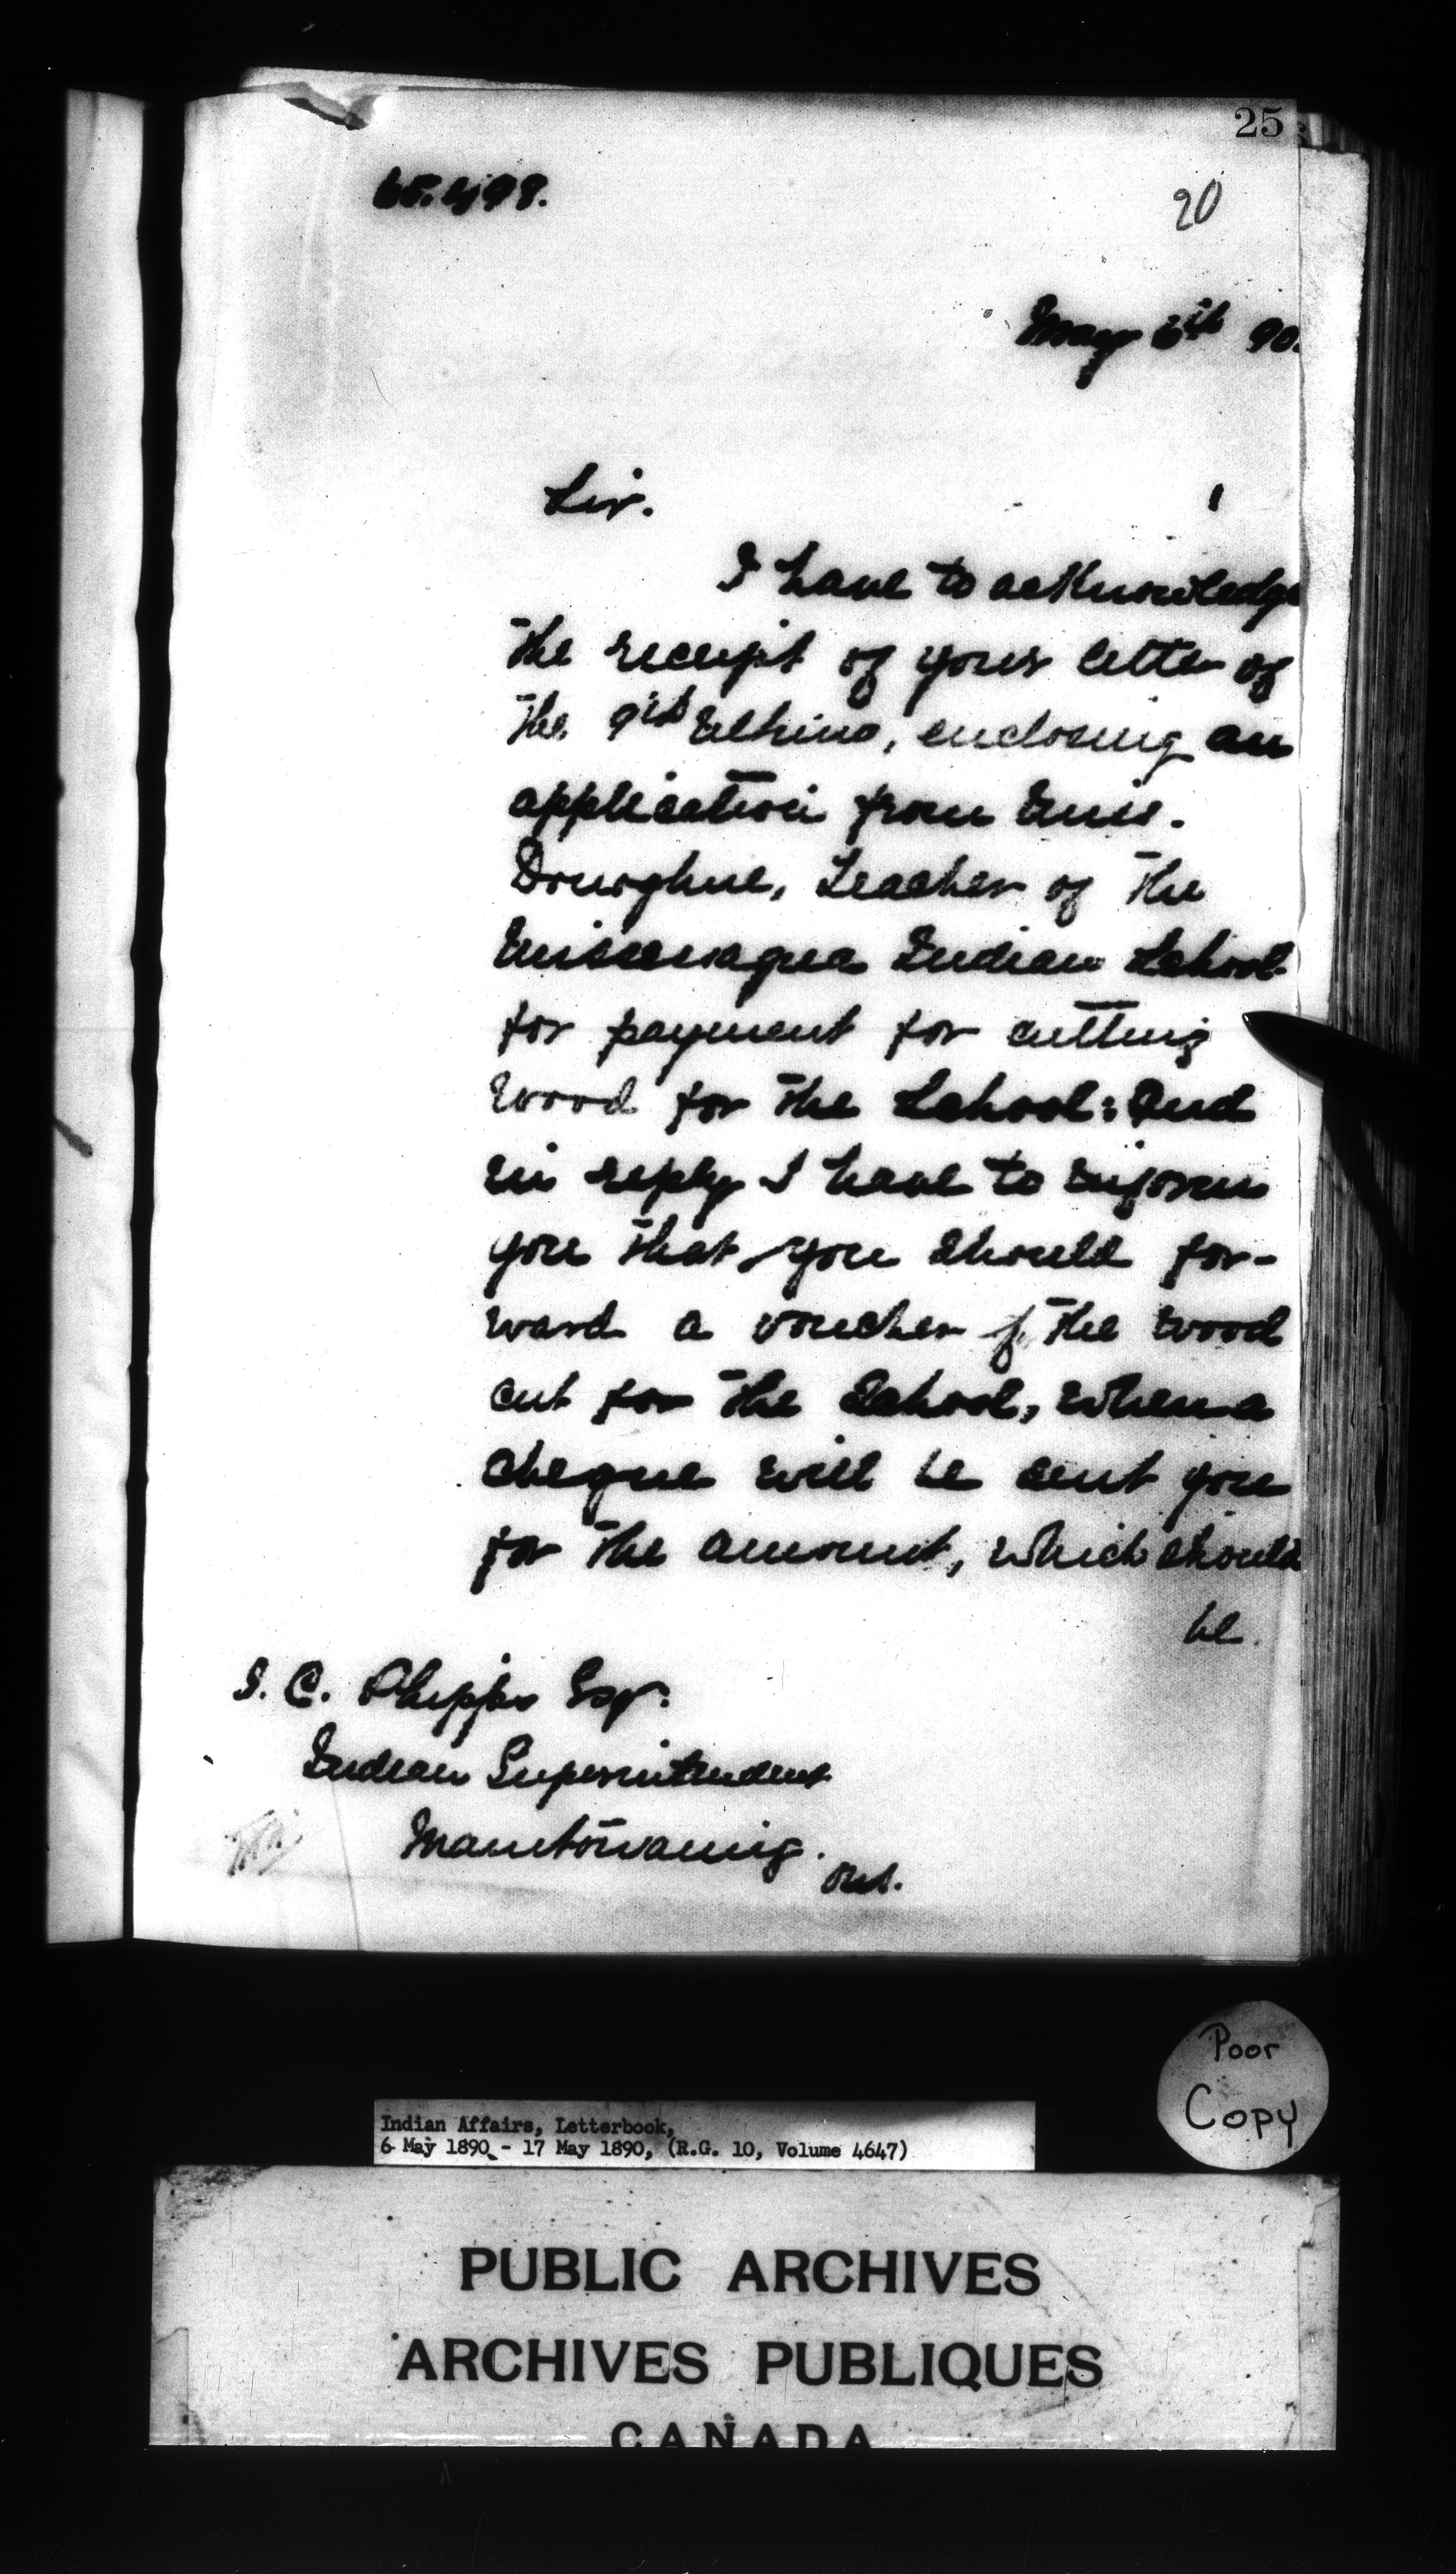 25
90
May 6th 90.
Sir.
I have to acknowledge
the receipt of your letter of
the 9th Ultimo, enclosing an
application from Miss.
Donoghue, Teacher of the
Mississagua Indian School
for payment for cutting
wood for the School: and
in reply I have to inform
you that you should for-
ward a voucher f. the wood
cut for the School, when a
cheque will be sent you
for the amount, which should
be.
J. C. Phipps Esqr.
Indian Superintendent
Manitowaning.
Ont.
Poor
Copy
Indian Affairs, Letterbook,
6 May 1890 - 17 May 1890, (R.G. 10, Volume 4647)
PUBLIC ARCHIVES
ARCHIVES PUBLIQUES
CANADA